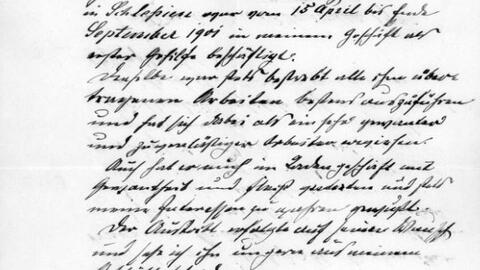 in Schlesien war vom 15 April bis Ende
September 1901 in meinem Geschäft als
erster Gehilfe beschäftigt.
Derselbe war stets bestrebt alle ihm über-
tragenen Arbeiten bestens auszuführen
und hat sich dabei als ein sehr gewandter
und zuverlässiger Arbeiter erwiesen.
Auch hat er mich im Ladengeschäft mit
Gewandtheit und Fleiß vertreten und stets
meine Interessen zu wahren gesucht.
Der Austritt erfolgte auf seinen Wunsch
und sehe ich ihn ungern aus meinem